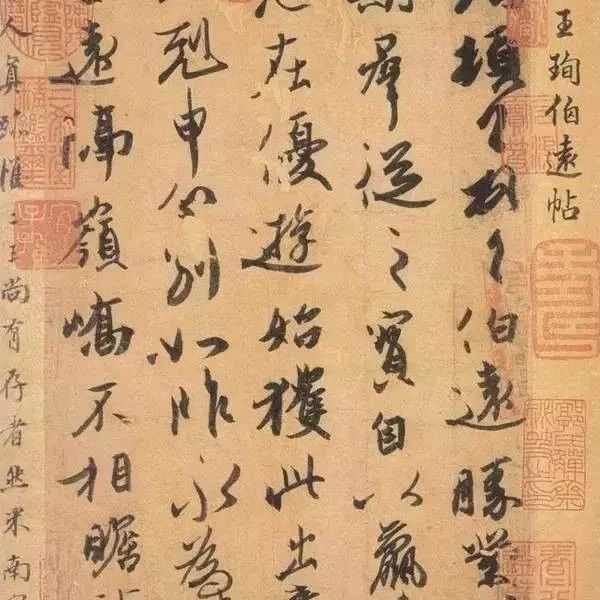 王珣伯遠帖
頓首頓首伯遠勝業
羣從之寶自以羸
在優遊始獲此出
剋申分別如昨永為
遠隔嶺嶠不相瞻
人真跡惟二王尚有存者然米南